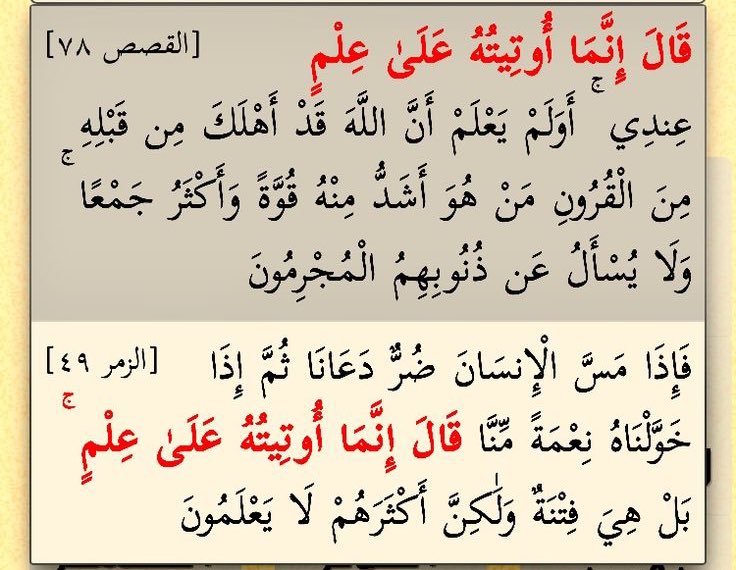 قَالَ إِنَّمَا أُوتِيتُهُ عَلَىٰ عِلْمٍ [القصص ٧٨]
عِندِي ۚ أَوَلَمْ يَعْلَمْ أَنَّ اللَّهَ قَدْ أَهْلَكَ مِن قَبْلِهِ
مِنَ الْقُرُونِ مَنْ هُوَ أَشَدُّ مِنْهُ قُوَّةً وَأَكْثَرُ جَمْعًا ۚ
وَلَا يُسْأَلُ عَن ذُنُوبِهِمُ الْمُجْرِمُونَ
فَإِذَا مَسَّ الْإِنسَانَ ضُرٌّ دَعَانَا ثُمَّ إِذَا [الزمر ٤٩]
خَوَّلْنَاهُ نِعْمَةً مِّنَّا قَالَ إِنَّمَا أُوتِيتُهُ عَلَىٰ عِلْمٍ ۚ
بَلْ هِيَ فِتْنَةٌ وَلَٰكِنَّ أَكْثَرَهُمْ لَا يَعْلَمُونَ